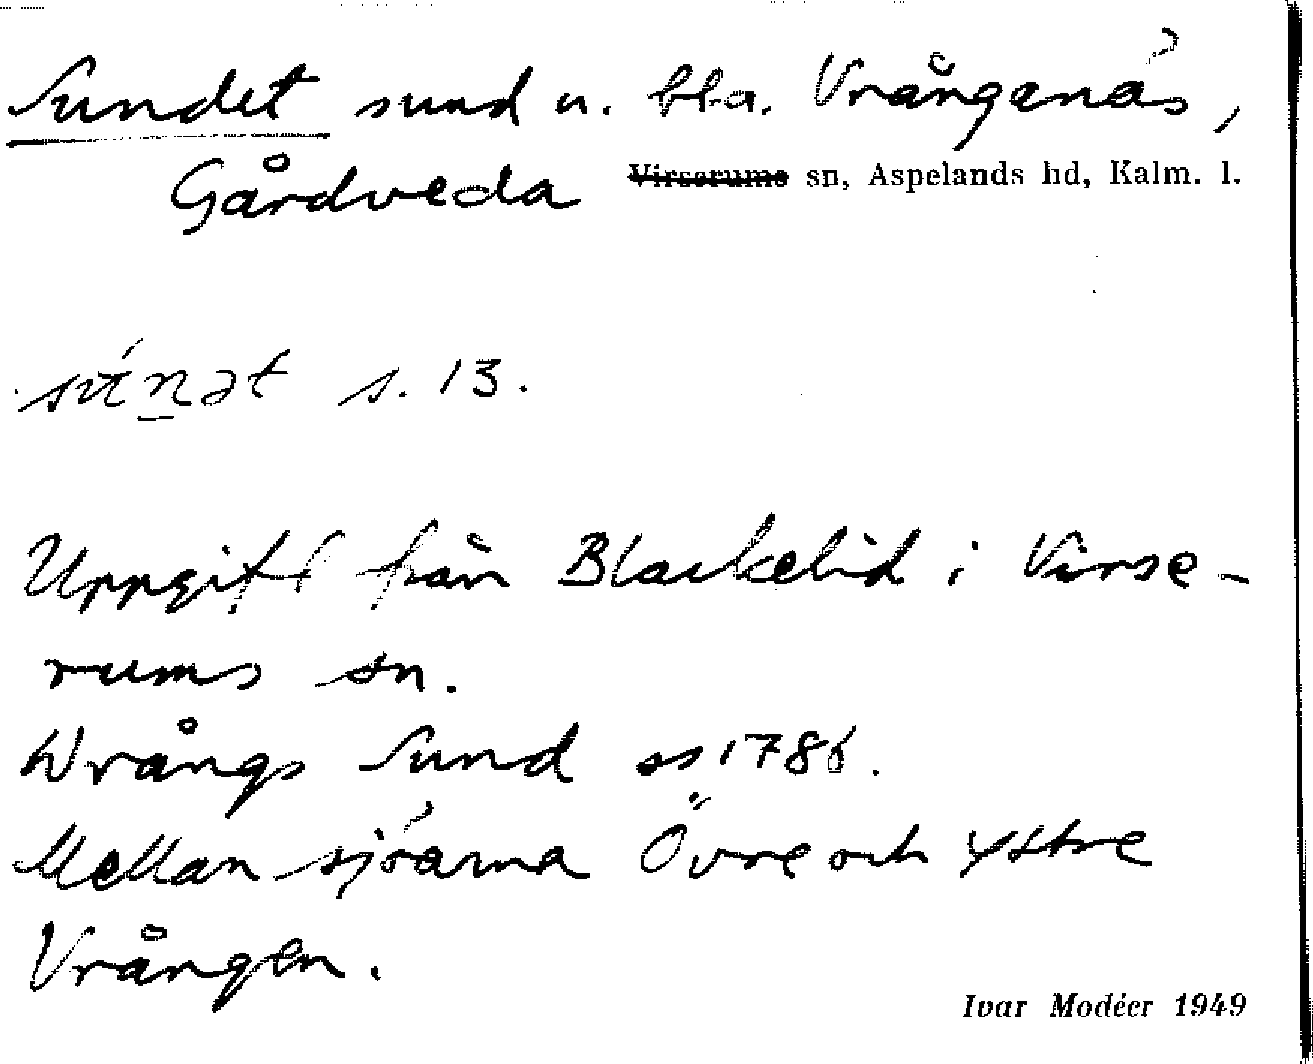 Sundet sund u. bl.a. Vrånganäs,
Gårdveda Virserums sn, Aspelands hd, Kalm. l.
s. 13.
Uppgift från Blackelid i Virse-
rums sn.
Wrångs Sund ss 1786.
Mellan sjöarna Övre och Yttre
Vrången.
Ivar Modéer 1949